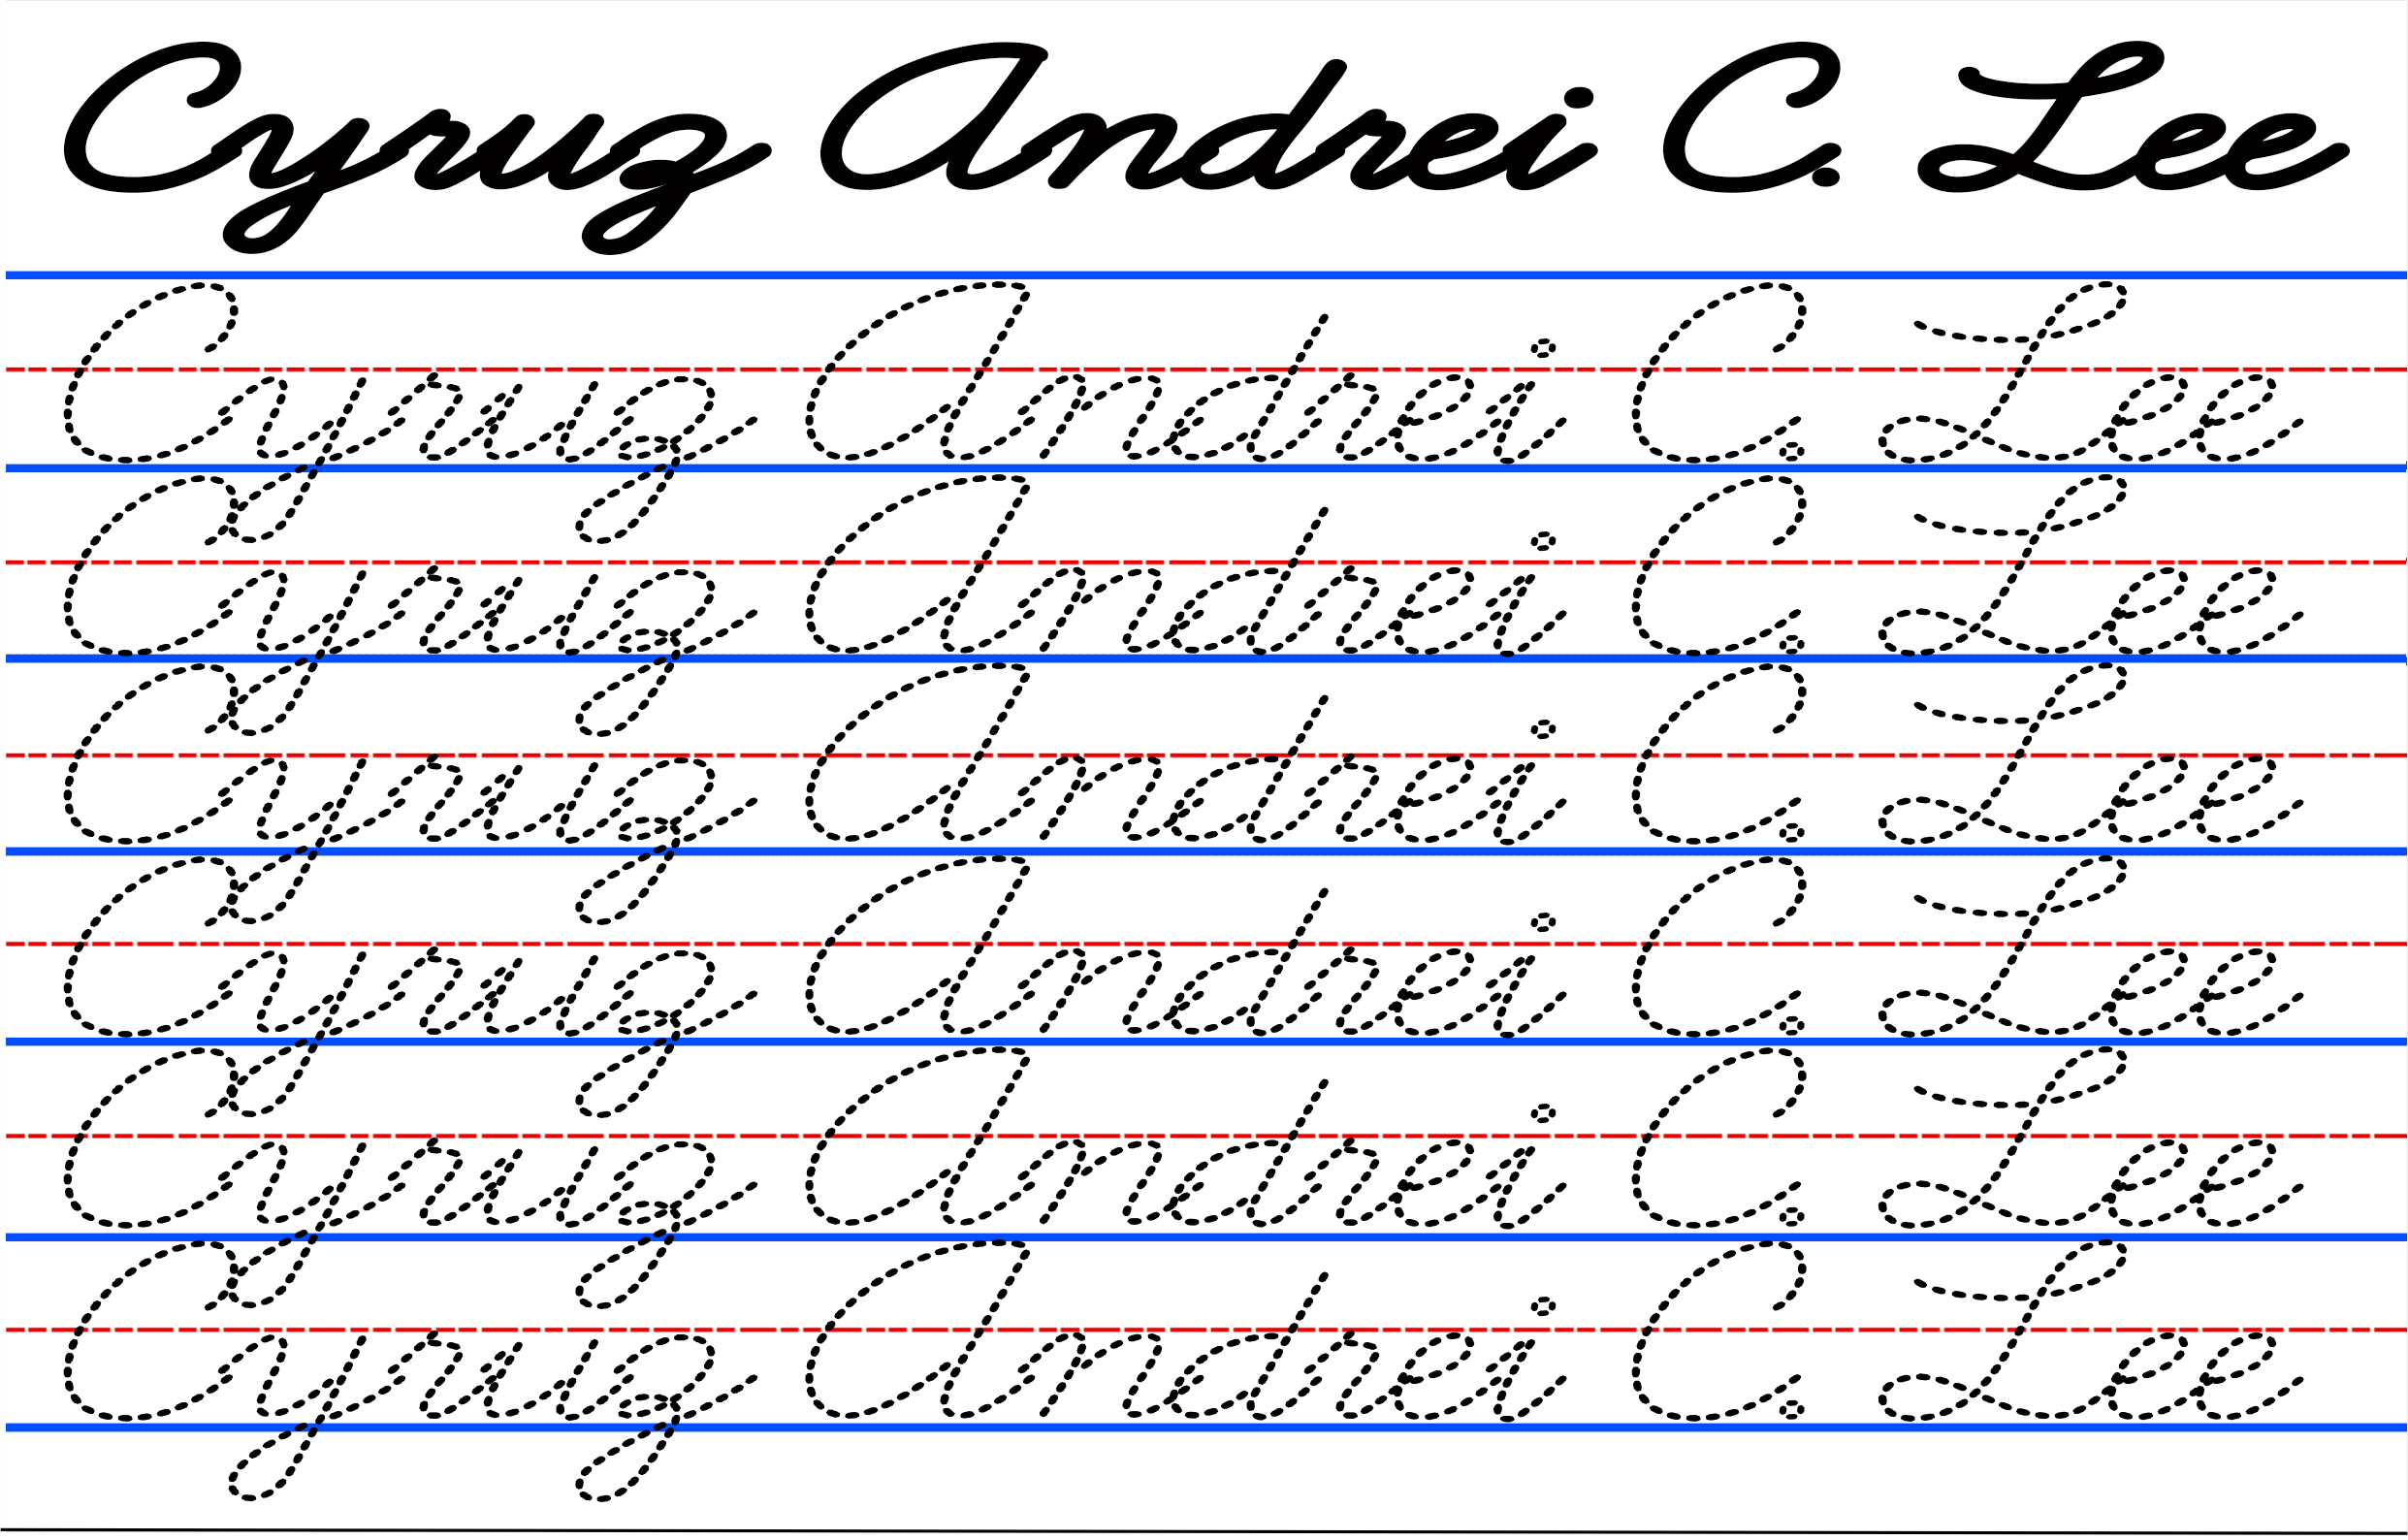 Cyruz Andrei C. Lee
Cyruz Andrei C. Lee
Cyruz Andrei C. Lee
Cyruz Andrei C. Lee
Cyruz Andrei C. Lee
Cyruz Andrei C. Lee
Cyruz Andrei C. Lee